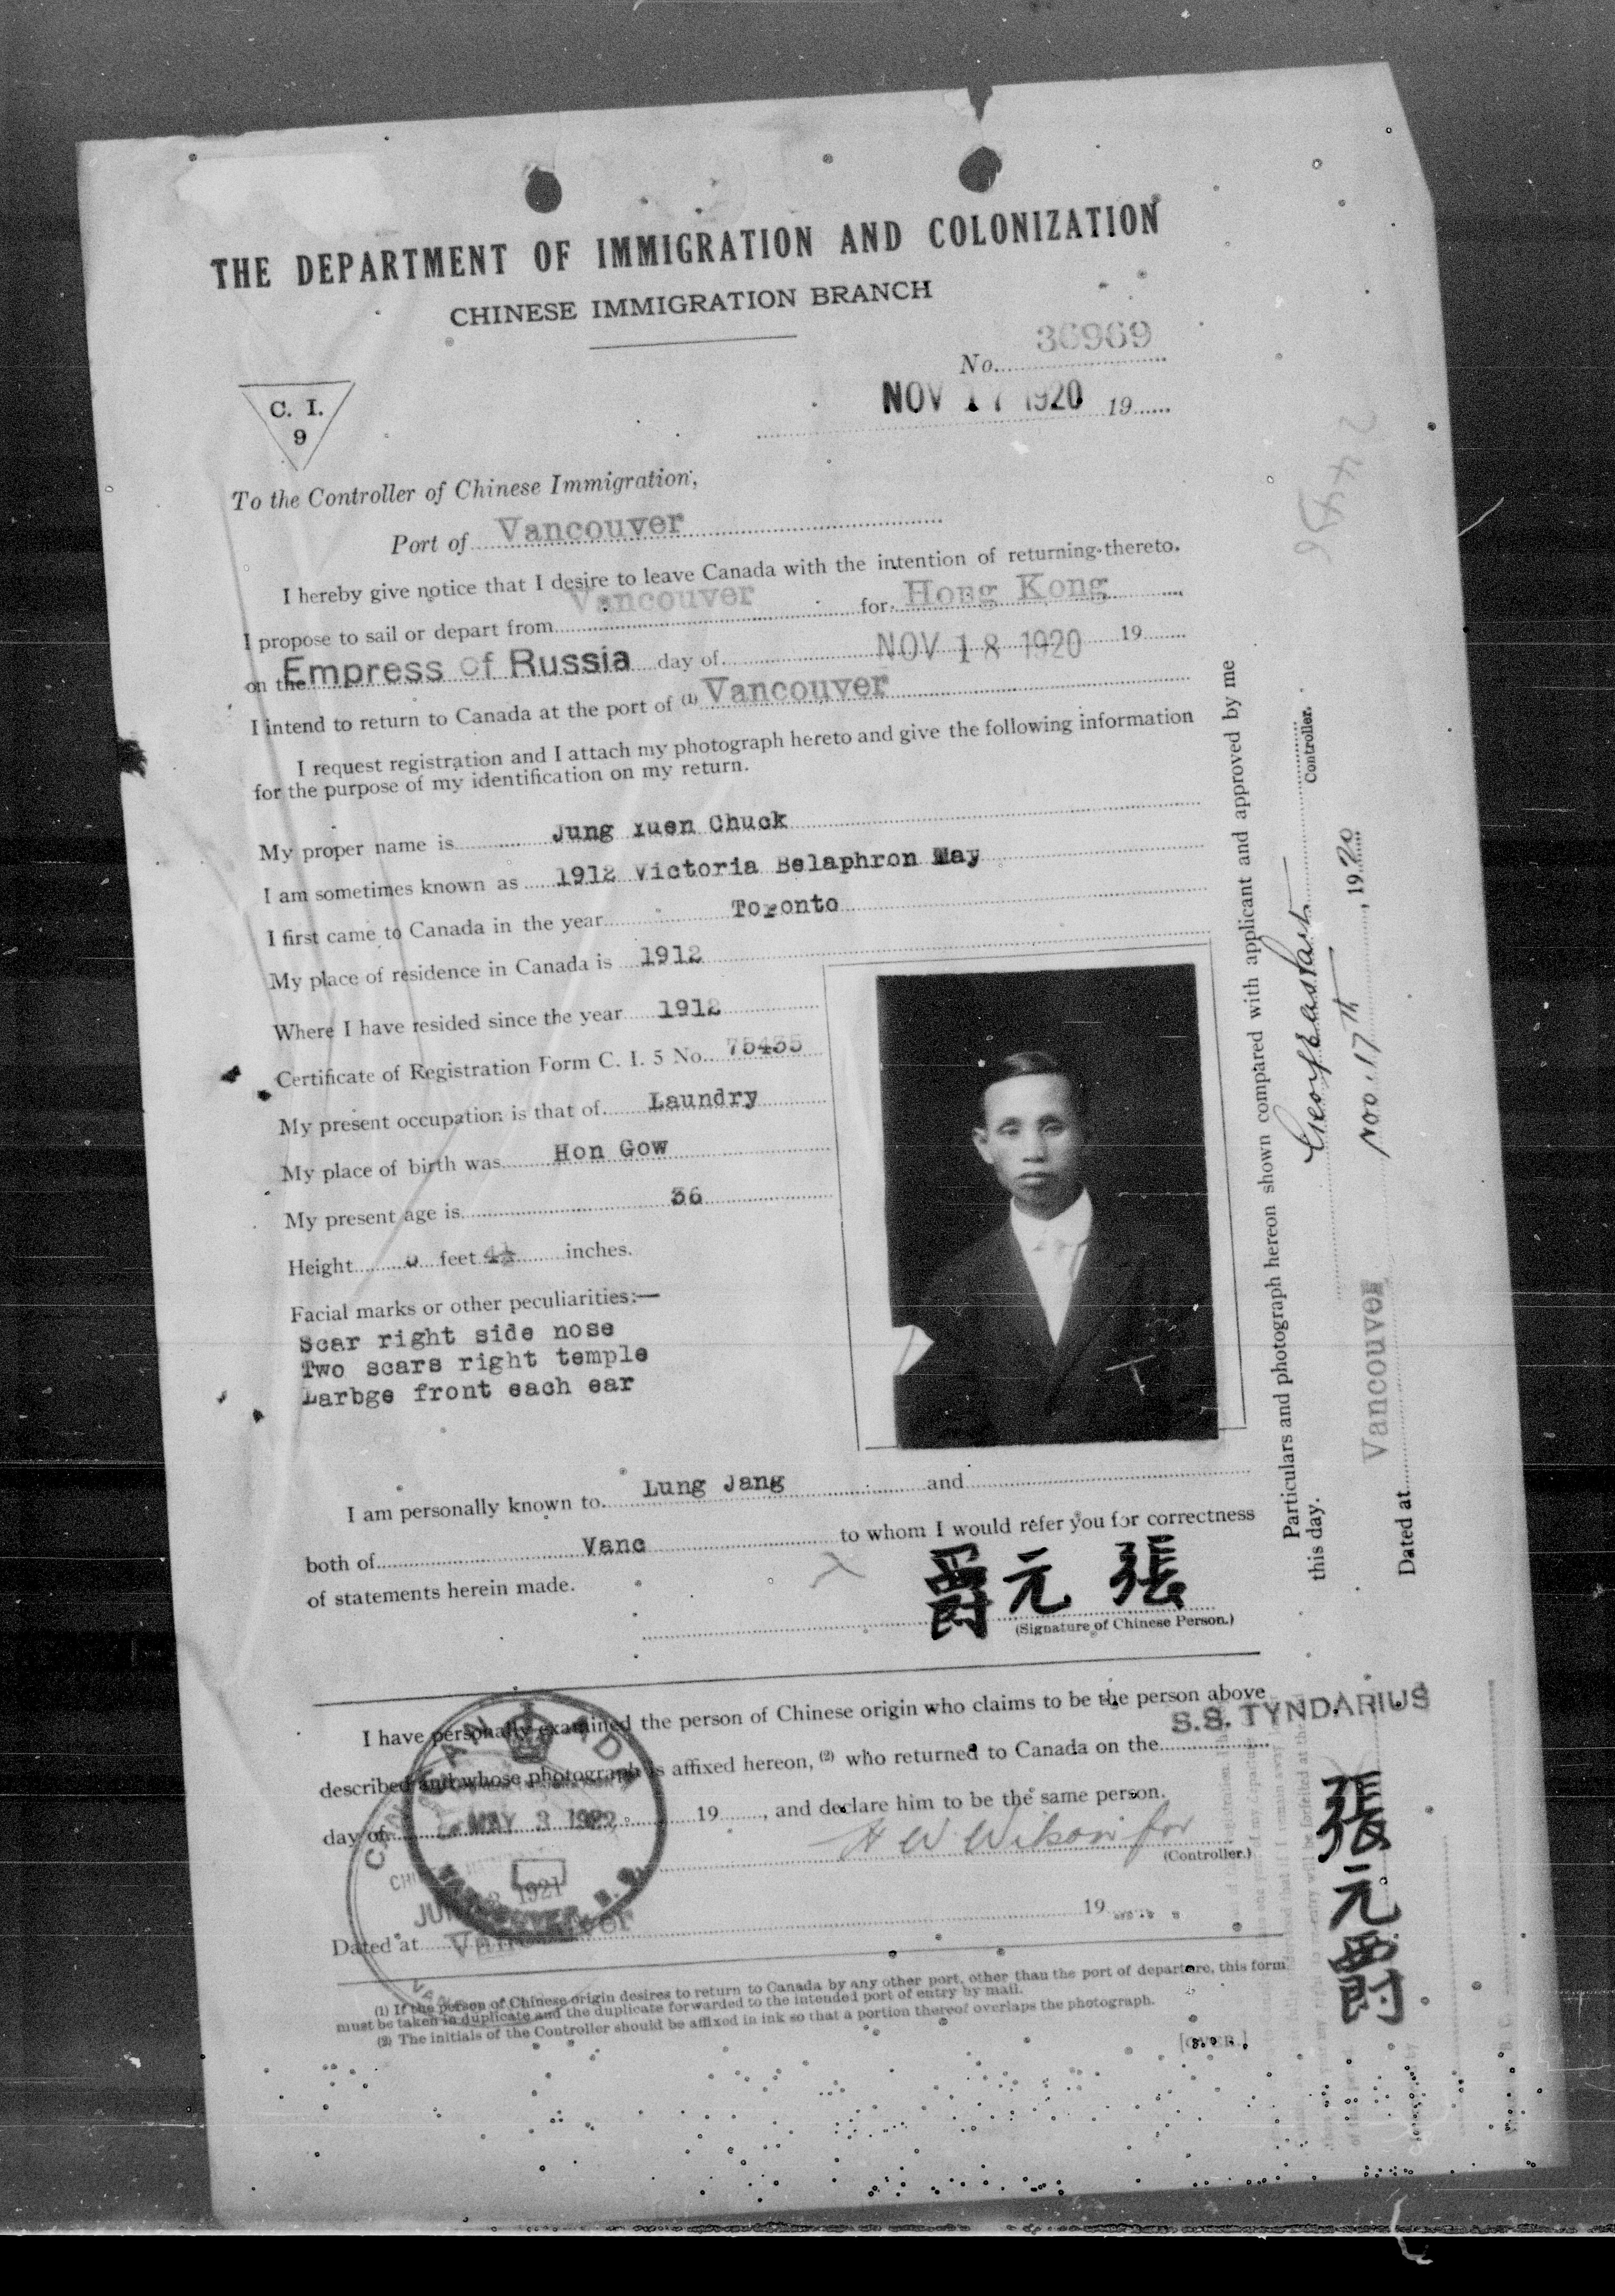 THE DEPARTMENT OF IMMIGRATION AND COLONIZATION
CHINESE IMMIGRATION BRANCH
No. 36969
NOV 17 1920 19
C. I.
9
To the Controller of Chinese Immigration,
Port of Vancouver
I hereby give notice that I desire to leave Canada with the intention of returning thereto.
I propose to sail or depart from Vancouver for Hong Kong
on the Empress of Russia day of NOV 18 1920 19
I intend to return to Canada at the port of (1) Vancouver
I request registration and I attach my photograph hereto and give the following information
for the purpose of my identification on my return.
My proper name is Jung Yuen Chuck
I am sometimes known as 1912 Victoria Belaphron May
I first came to Canada in the year Toronto
My place of residence in Canada is 1912
Where I have resided since the year 1912
Certificate of Registration Form C. I. 5 No. 75435
My present occupation is that of Laundry
My place of birth was Hon Gow
My present age is 36
Height 5 feet 4½ inches.
Facial marks or other peculiarities:—
Scar right side nose
Two scars right temple
Larbge front each ear
I am personally known to Lung Jang and
both of Vanc to whom I would refer you for correctness
of statements herein made.
爵元張
(Signature of Chinese Person.)
I have personally examined the person of Chinese origin who claims to be the person above
S.S. TYNDARIUS
described and whose photograph is affixed hereon, (2) who returned to Canada on the
day of MAY 3 1922 19, and declare him to be the same person.
H W Wilson for
(Controller.)
CANADA
1921
19
Dated at Vancouver
(1) If the person of Chinese origin desires to return to Canada by any other port, other than the port of departure, this form
must be taken in duplicate and the duplicate forwarded to the intended port of entry by mail.
(2) The initials of the Controller should be affixed in ink so that a portion thereof overlaps the photograph.
[OVER.]
Particulars and photograph hereon shown compared with applicant and approved by me
this day.
Controller.
Dated at Vancouver Nov. 17th, 1920
張元爵